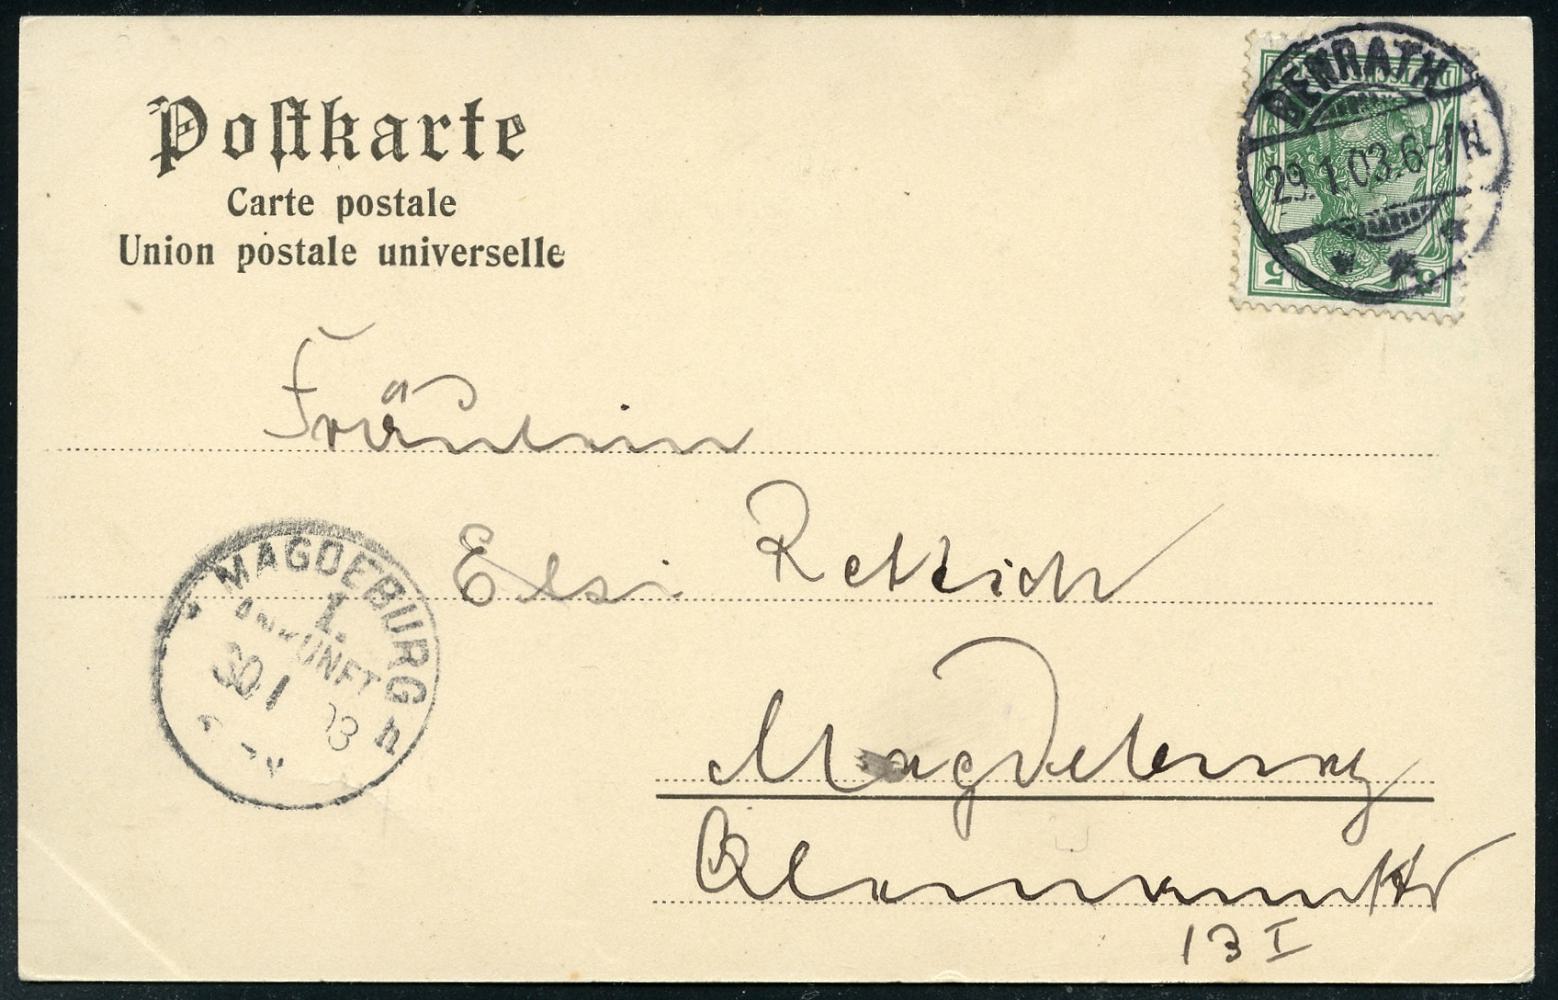 Postkarte
Carte postale
Union postale universelle
BENRATH
29.1.03.6-7N
5 5
Fräulein
Elsi Rettich
MAGDEBURG
1.
ANKUNFT
30 1 03
Magdeburg
13 I